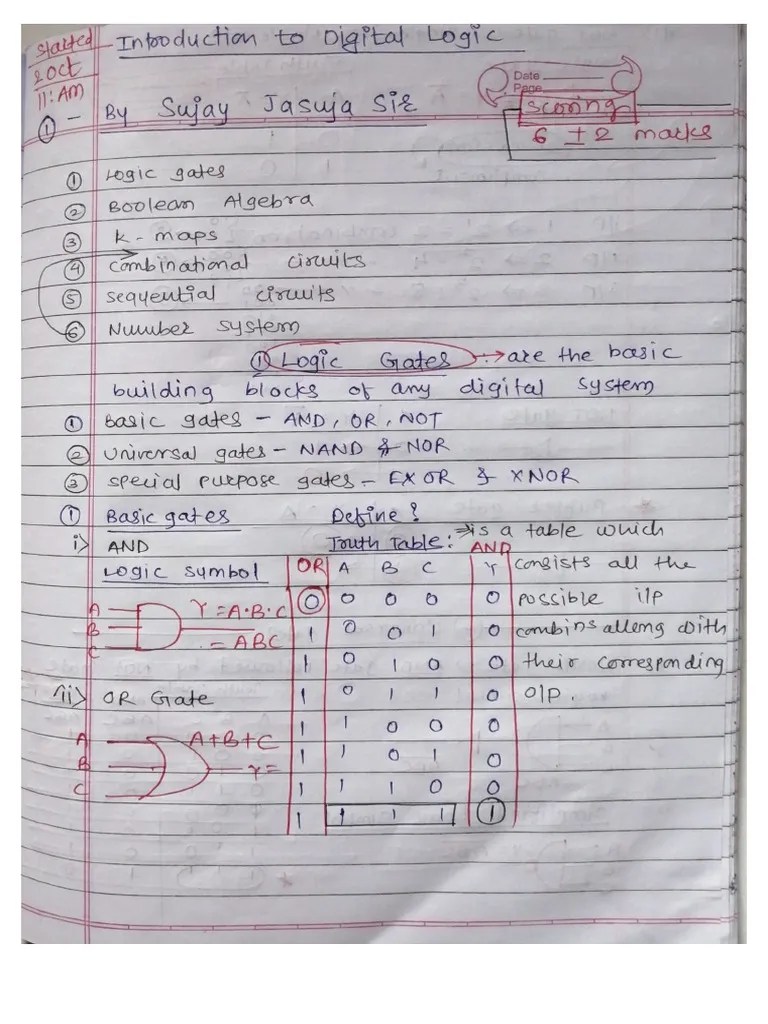 started
2 Oct
11:AM
① -
Introduction to Digital Logic
Date
Page
By Sujay Jasuja Sir
Scoring
6 ± 2 marks
① Logic gates
② Boolean Algebra
③ K-maps
④ Combinational circuits
⑤ Seqyential circuits
⑥ Number system
① Logic Gates :→ are the basic
building blocks of any digital system
① Basic gates - AND, OR, NOT
② Universal gates - NAND & NOR
③ special purpose gates - EX OR & XNOR
① Basic gates Define?
i> AND Truth Table: ⇒is a table which
Logic symbol OR A B C AND Y consists all the
A B C Y = A·B·C 0 0 0 0 0 possible i/p
= ABC 1 0 0 1 0 combins alleng with
1 0 1 0 0 their corresponding
ii> OR Gate 1 0 1 1 0 o/p.
A B C A+B+C 1 1 0 0 0
Y= 1 1 0 1 0
1 1 1 0 0
1 1 1 1 1